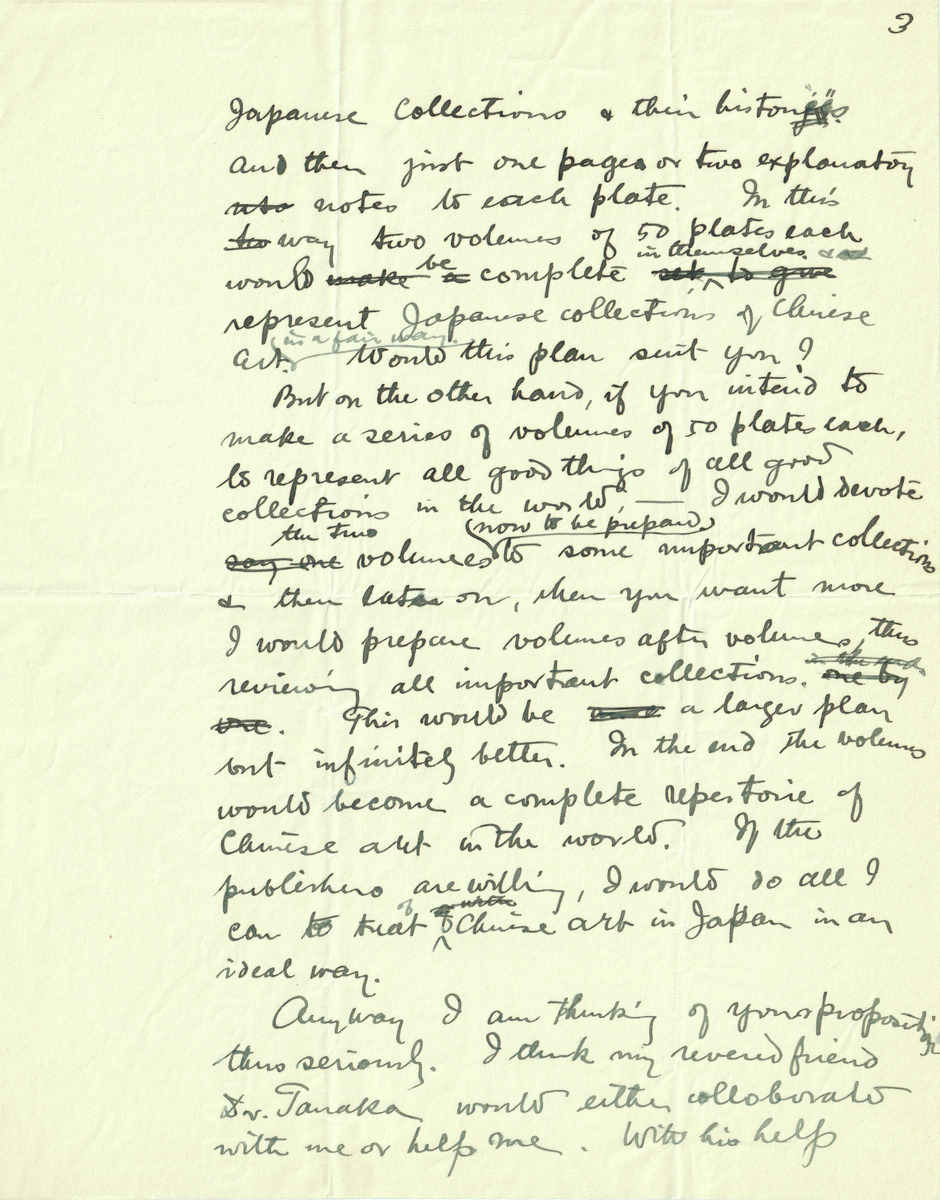 3
Japanese Collections & their histories.
and then just one page or two explanatory
nto notes to each plate. In this
two way two volumes of 50 plates each
in themselves
would make be a complete set to give
represent Japanese collections of Chinese
(in a fair way.
art. Would this plan suit you?
But on the other hand, if you intend to
make a series of volumes of 50 plates each,
to represent all good things of all good
collections in the world, — I would devote
the two (now to be prepared)
say one volumes to some important collections
& then later on, when you want more
I would prepare volumes after volumes, thus
in the end
reviewing all important collections. one by
one. This would be a larger plan
but infinitely better. In the end the volumes
would become a complete repertoire of
Chinese art in the world. If the
publishers are willing, I would do all I
of
can to treat Chinese art in Japan in an
ideal way.
Anyway I am thinking of your proposition
thus seriously. I think my revered friend
Dr. Tanaka would either colloborate
with me or help me. With his help